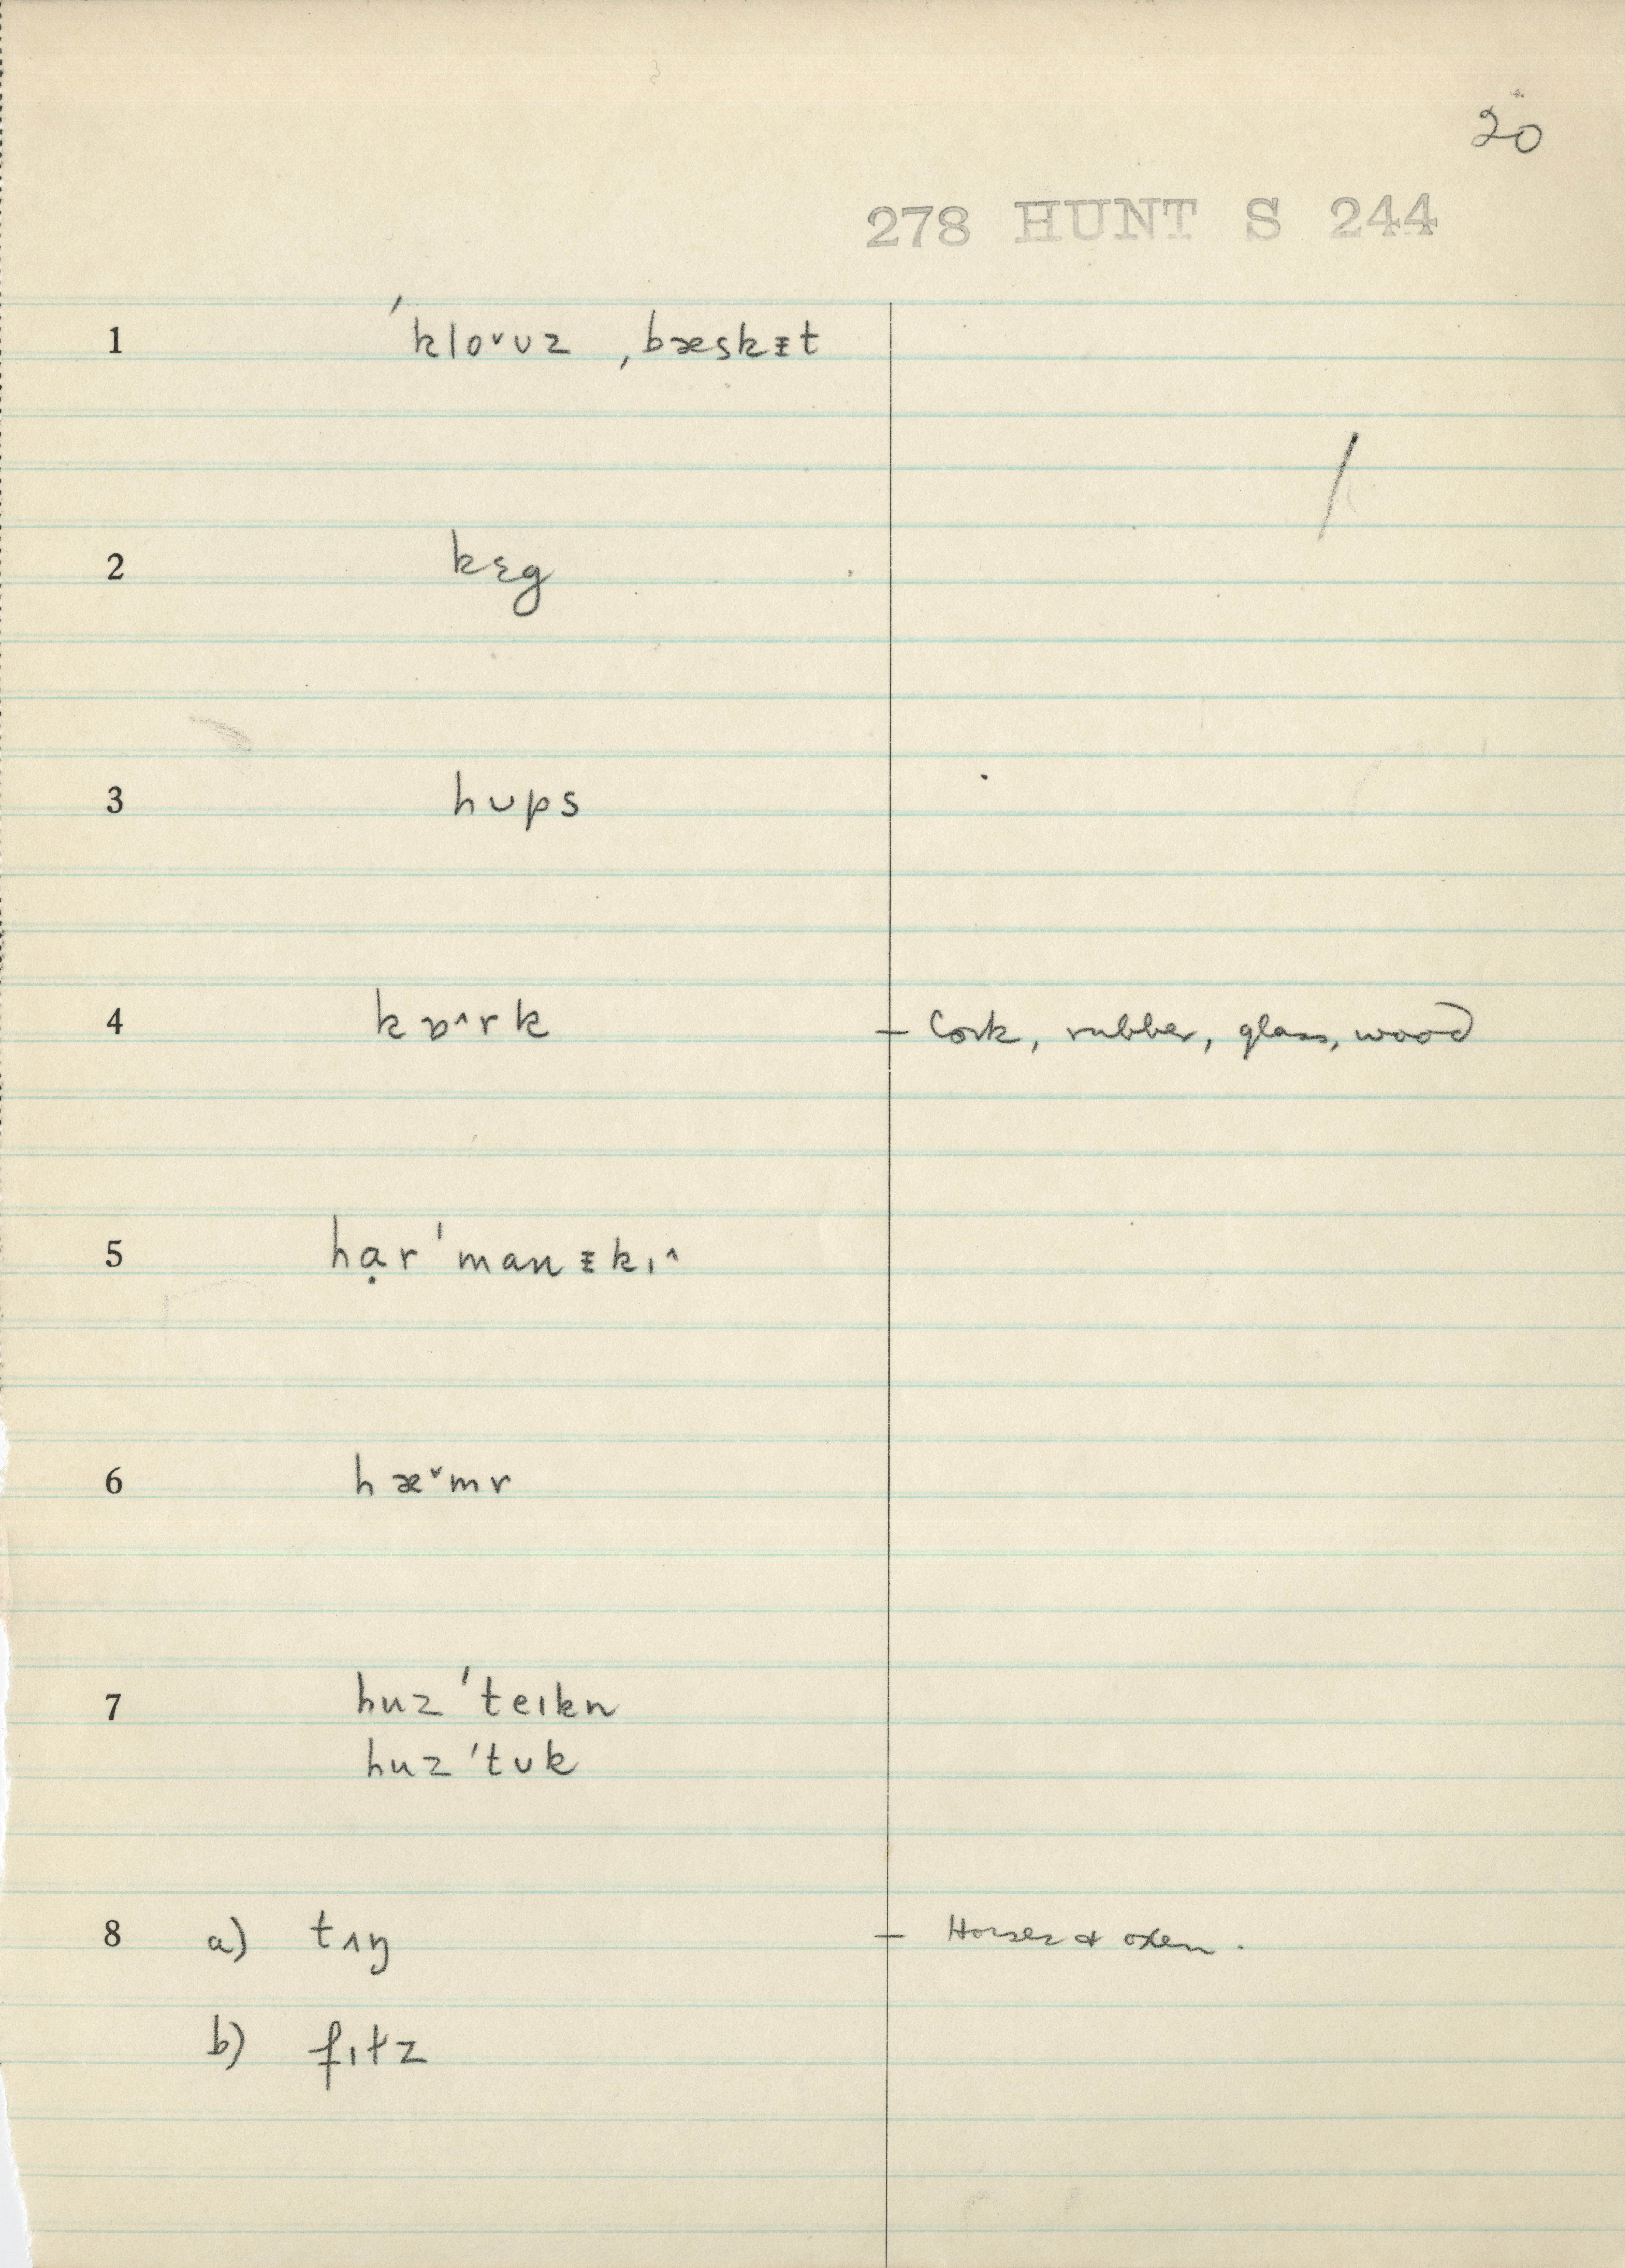 20
278 HUNT S 244
1 ˈkloˇʊz ˌbæskᵻt
2 kɛg
3 hʊps
4 kɒ^rk – Cork, rubber, glass, wood
5 hạrˈmanᵻkɪ^
6 hæˇmr
7 huzˈteɪkn
huzˈtʊk
8 a) tʌŋ – Horses & oxen.
b) fɪɫz